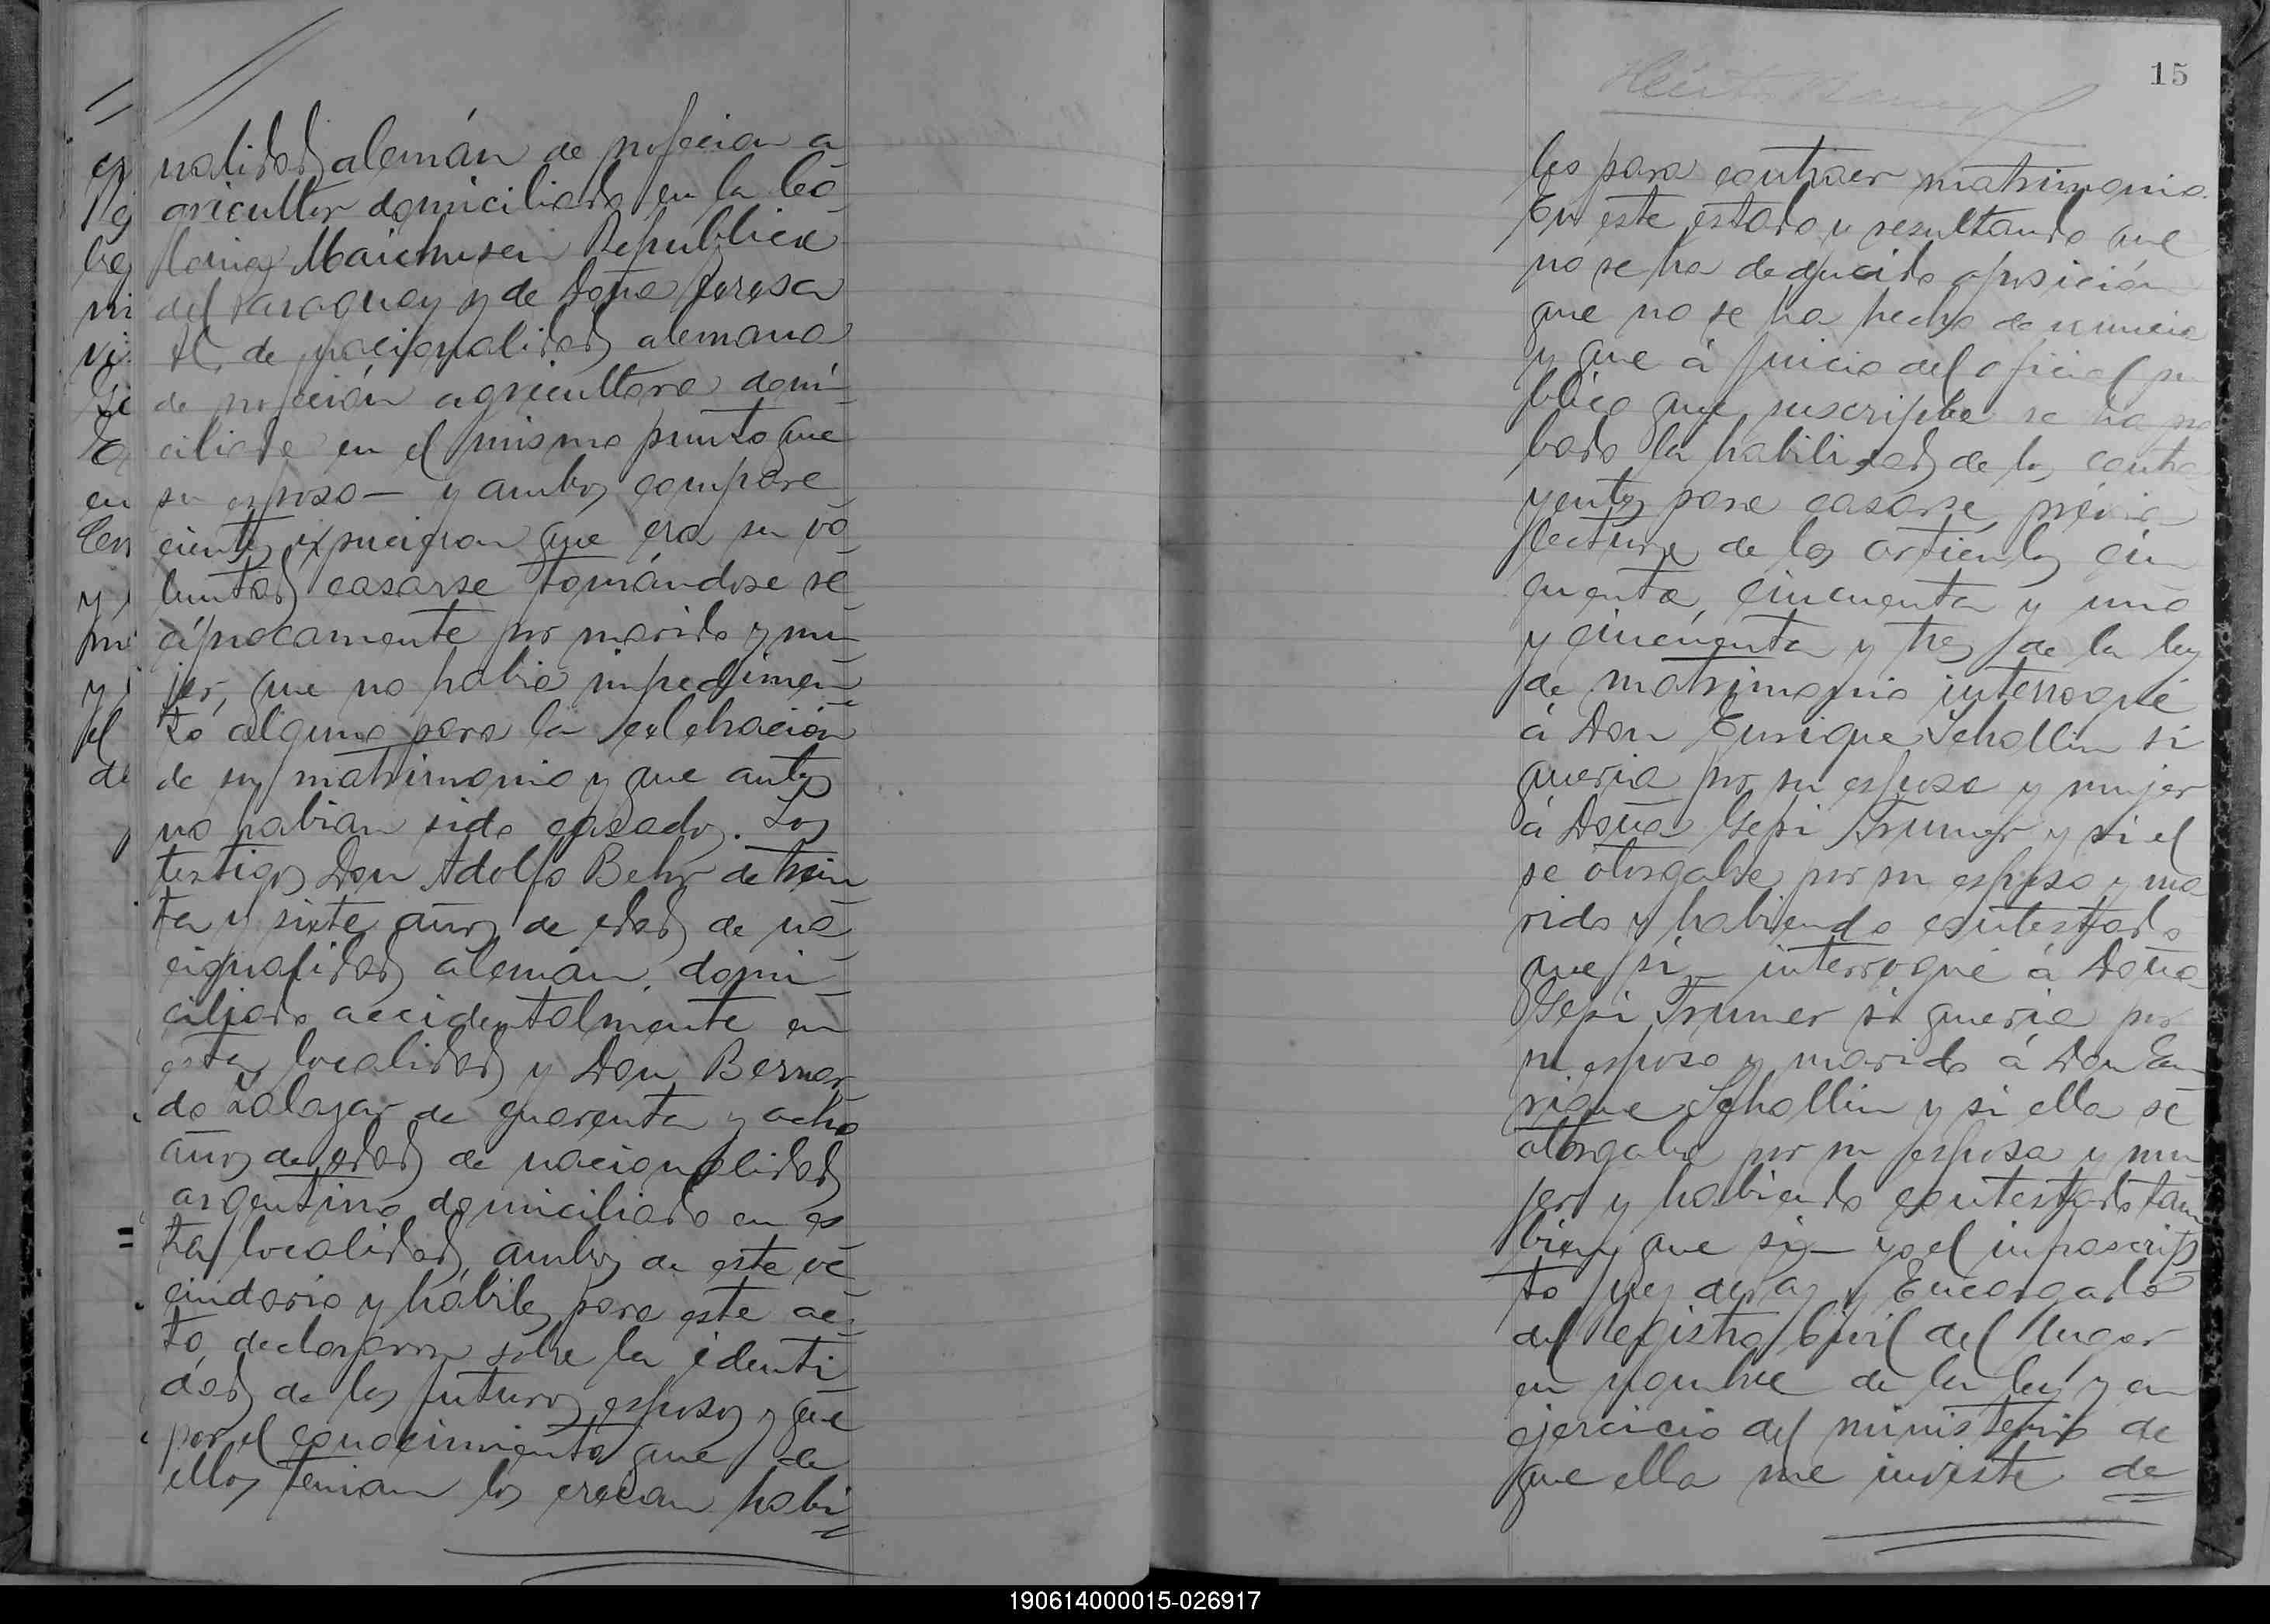 nalidad alemán de profecion a
gricultor domiciliado en la co
lonia Maichusen Republica
del Paraguay y de Doña Teresa
H. de nacionalidad alemana
de profeción agricultora domi
ciliada en el mismo punto que
su esposo — y ambos compare
cientes expucieron que era su vo
luntad casarse tomándose re
cíprocamente por marido y mu
jer, que no habia impedimen
to alguno para la celebración
de su matrimonio y que antes
no habian sido casados. Los
testigos Don Adolfo Behr de trein
ta y siete años de edad de na
cionalidad alemán, domi
ciliado accidentalmente en
esta localidad y Don Bernar
do Zalazar de quarenta y ocho
años de edad de nacionalidad
argentino domiciliado en es
ta localidad, ambos de este ve
cindario y hábiles para este ac
to, declararon sobre la identi
dad de los futuros esposos y que
por el conocimiento que de
ellos tenian los creian habi
15
les para contraer matrimonio.
En este estado y resultando que
no se ha deducido oposición
que no se ha hecho denuncia
y que á juicio del oficial pu
blico que suscripbe se ha pro
bado la habilidad de los contra
yentes para casarse, prévia
lectura de los articulos cin
cuenta, cincuenta y uno
y cincuenta y tres de la ley
de matrimonio interrogué
á Don Enrique Schollin si
queria por su esposa y mujer
á Doña Gepi Trumer y si el
se otorgaba por su esposo y ma
rido y habiendo contestado
que si — interrogué á Doña
Gepi Trumer si queria por
su esposo y marido á Don En
rique Schollin y si ella se
otorgaba por su esposa y mu
jer y habiendo contestado tam
bien que si — yo el infrascrip
to Juez de Paz y Encargado
del Registro Civil del lugar
en nombre de la ley y en
ejercicio del ministerio de
que ella me inviste de
190614000015-026917